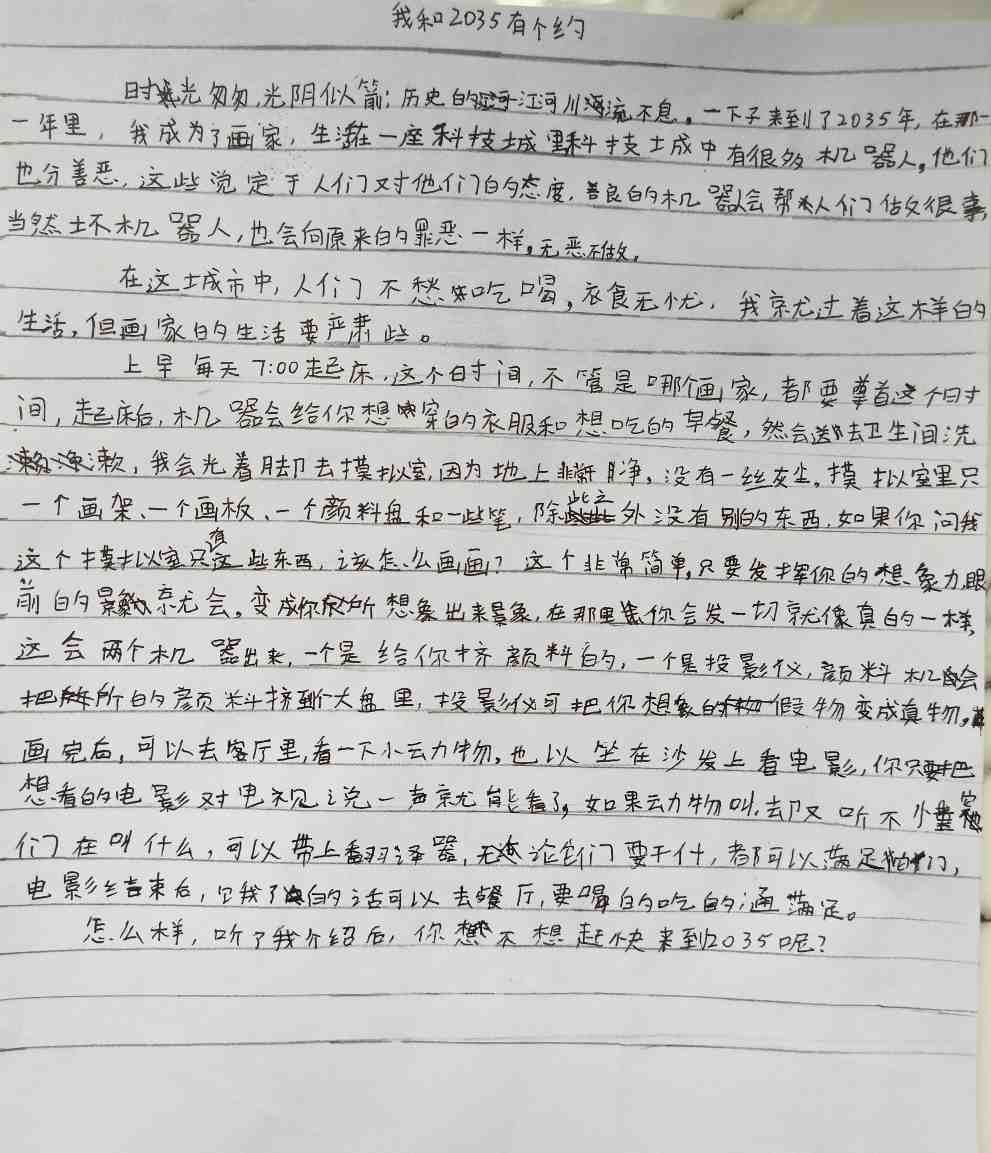 我和2035有个约
时光匆匆,光阴似箭;历史的江河川流不息。一下子来到了2035年,在那一
一年里,我成为了画家,生活在一座科技城里科技城中有很多机器人。他们
也分善恶,这些决定于人们对他们的态度,善良的机器会帮人们做很事,
当然坏机器人,也会向原来的罪恶一样。无恶不做。
在这城市中,人们不愁吃喝,衣食无忧,我就过着这样的
生活,但画家的生活要严肃些。
上早每天7:00起床,这个时间,不管是哪个画家,都要尊首这个时
间,起床后,机器会给你想穿的衣服和想吃的早餐,然会送去卫生间洗
漱,我会光着脚去摸拟室,因为地上非常净,没有一丝灰尘。摸拟室里只
一个画架、一个画板、一个颜料盘和一些笔,除此之外没有别的东西,如果你问我
这个摸拟室只有这些东西,该怎么画画?这个非常简单,只要发挥你的想象力眼
前的景就会。变成你所想象出来景象,在那里你会发一切就像真的一样,
这会两个机器出来,一个是给你挤颜料的,一个是投影仪,颜料机会
把所的颜料挤到大盘里,投影仪可把你想象的假物变成真物。
画完后,可以去客厅里,看一下小动物,也以坐在沙发上看电影,你只要把
想看的电影对电视说一声就能看了,如果动物叫,去又听不小懂它
们在叫什么,可以带上翻译器,无论它们要干什,都可以满足他们,
电影结束后,饿了的话可以去餐厅,要喝的吃的通满足。
怎么样,听了我介绍后,你想不想起快来到2035呢?